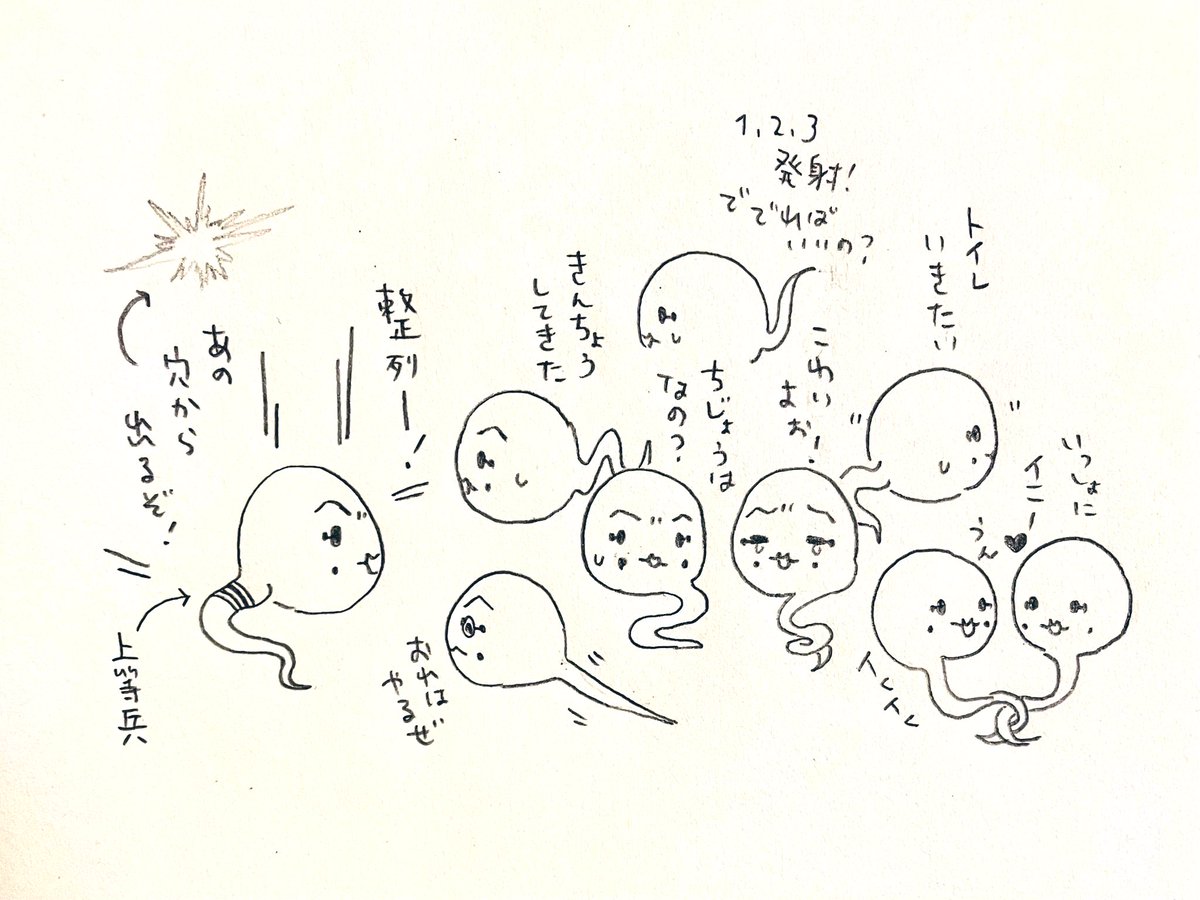 いっしょに
イこ!
うん♥
トイレ
いきたい
1、2、3
発射!
ででれば
いいの?
こわい
よぉ!
ちじょうは
なの?
きんちょう
してきた
おれは
やるぜ
整列ー!
あの
穴から
出るぞ!
上等兵